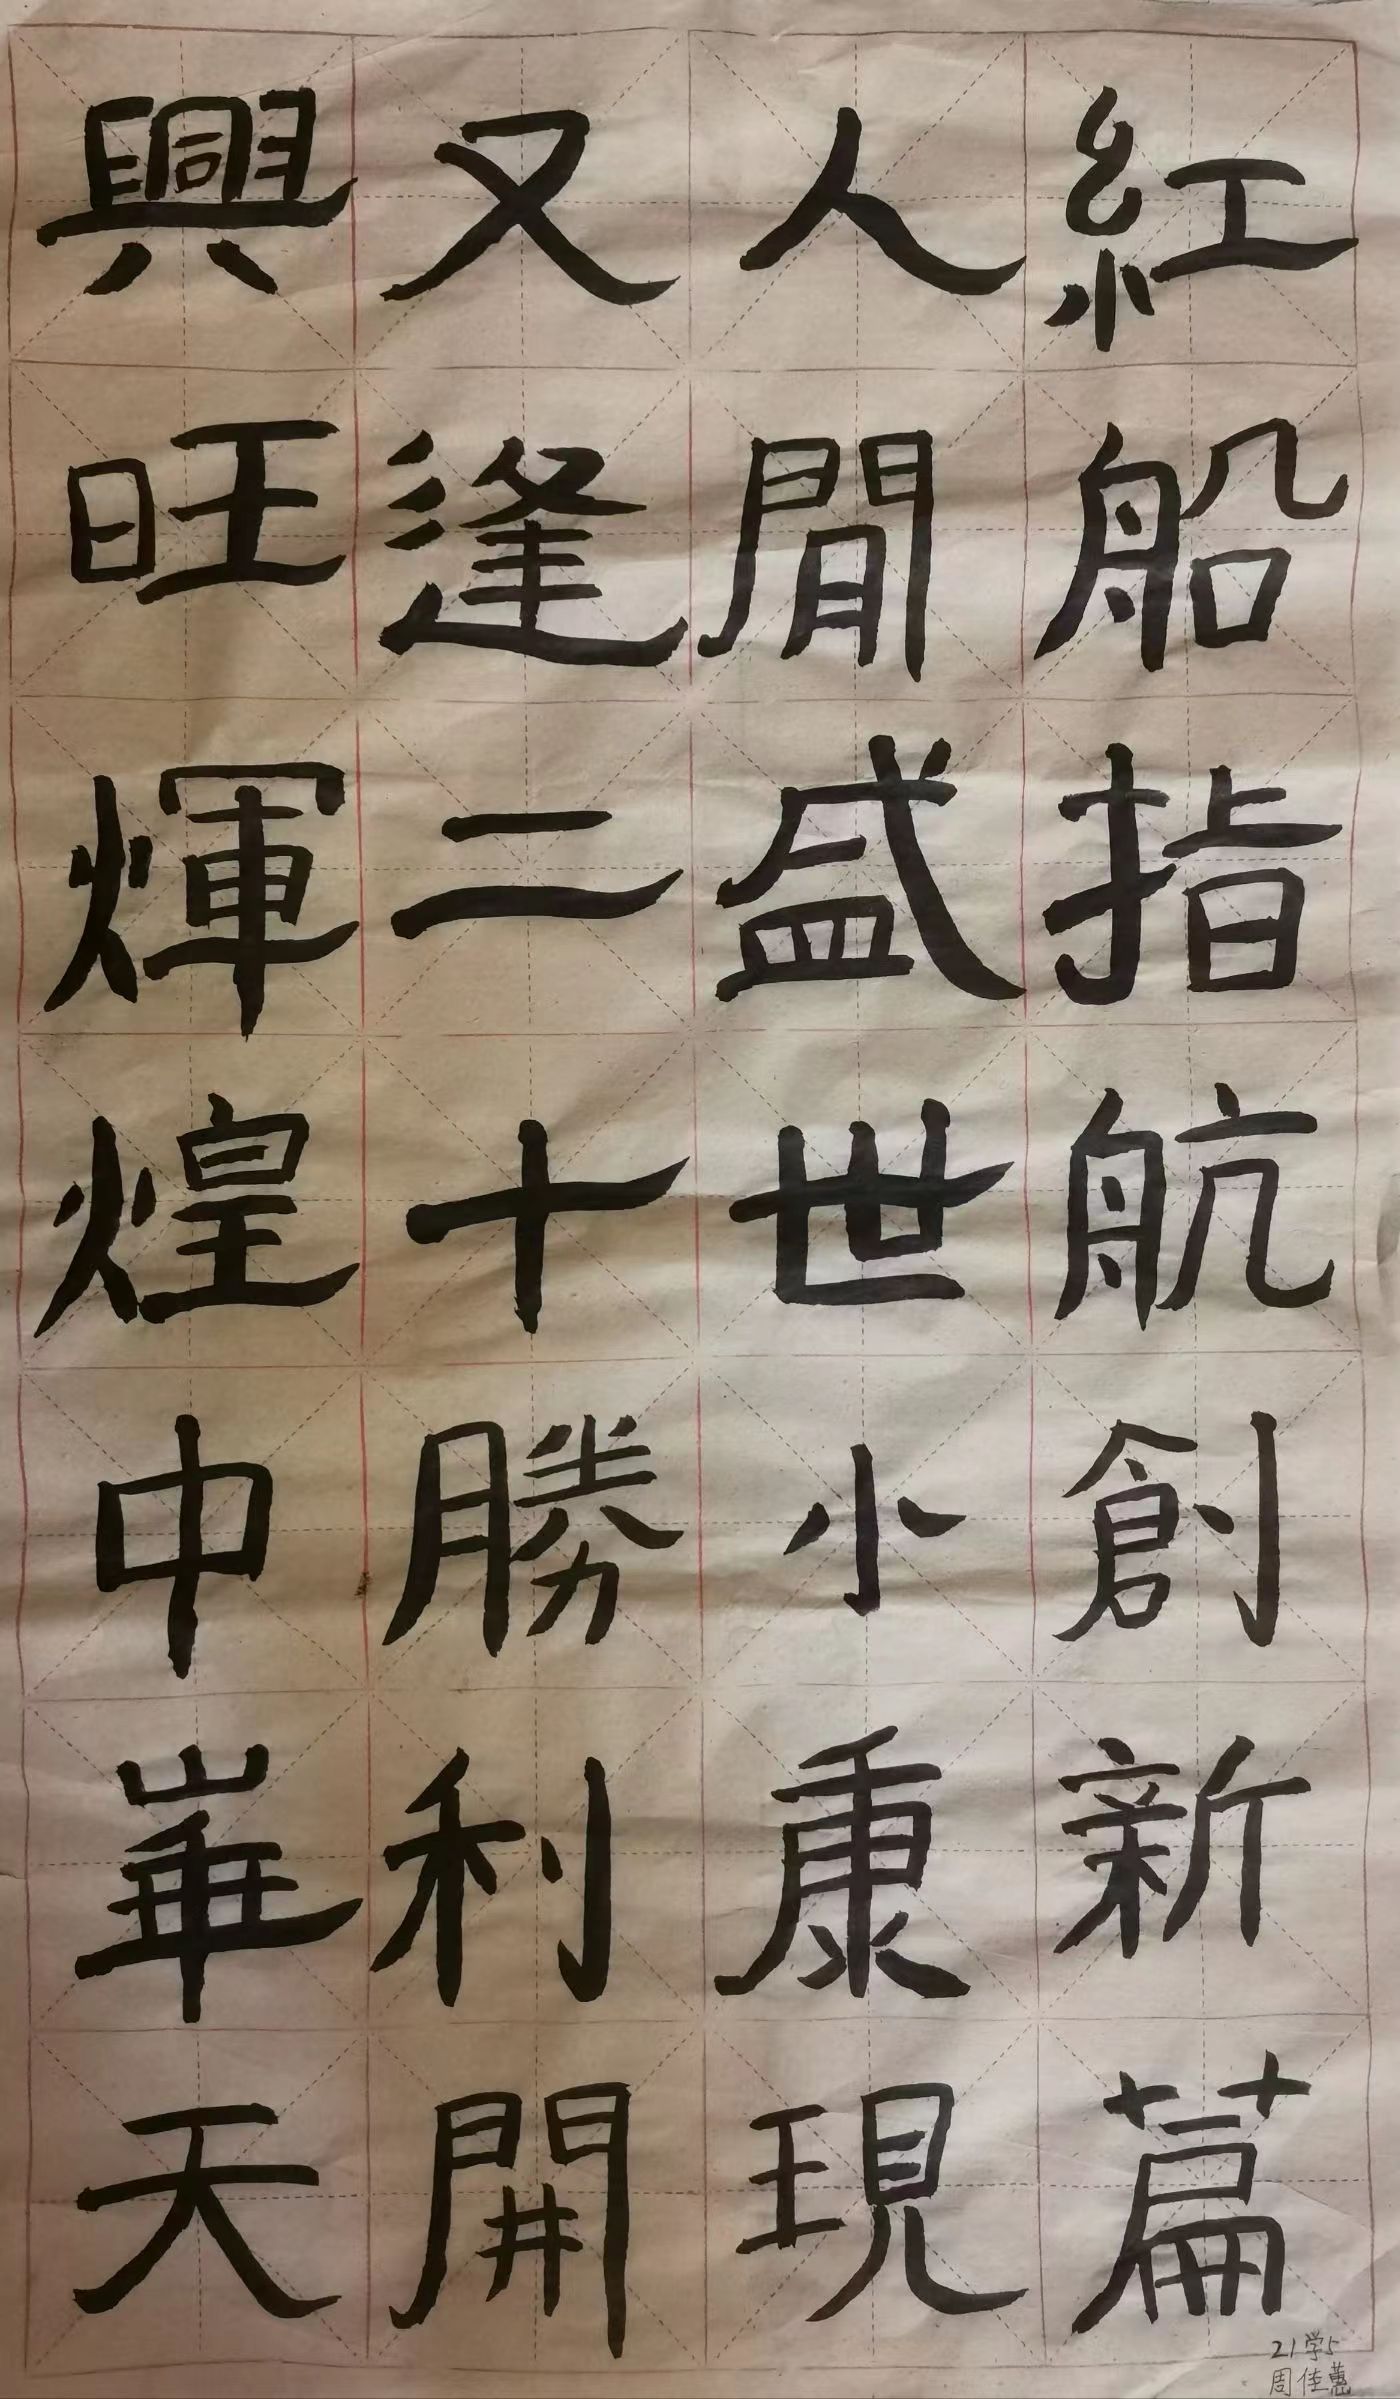 紅船指航創新篇
人間盛世小康現
又逢二十勝利開
興旺輝煌中華天
21学5
周佳蕙